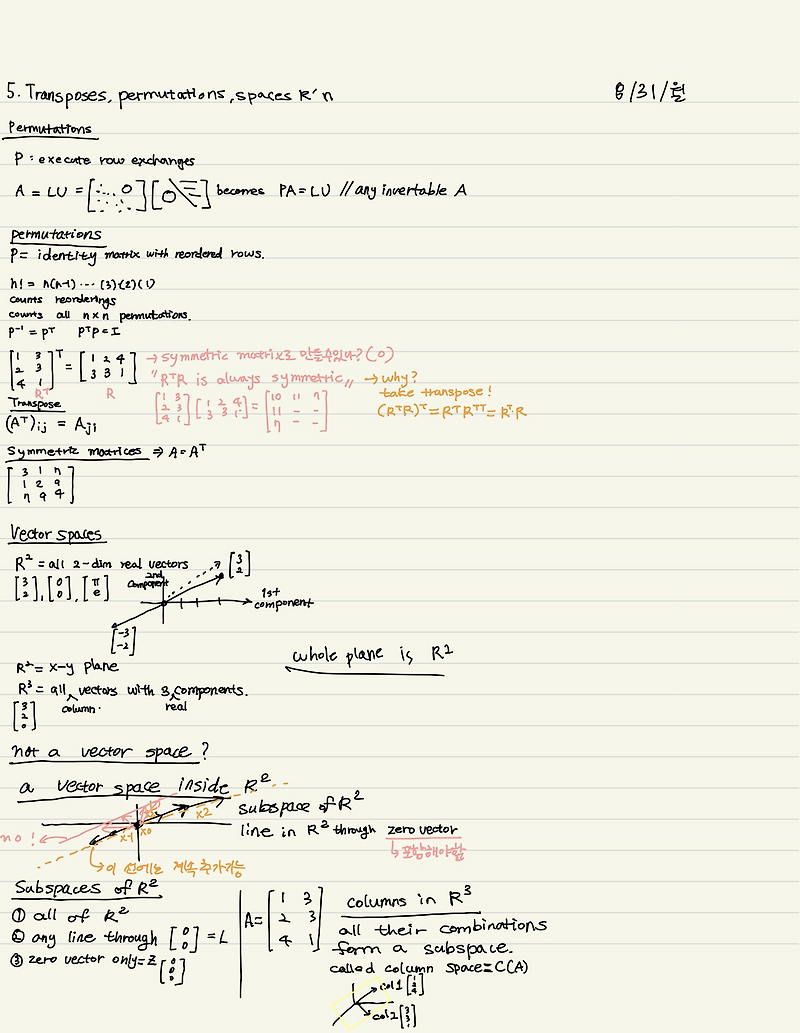 5. Transposes, permutations, spaces R'n 8/31/월
Permutations
P : execute row exchanges
A = LU = [ 0 ] [ 0 ] becomes PA = LU // any invertable A
permutations
P = identity matrix with reordered rows.
n! = n(n-1) ... (3)(2)(1)
counts reorderings
counts all n x n permutations.
P⁻¹ = Pᵀ PᵀP = I
[1 3; 2 3; 4 1]ᵀ = [1 2 4; 3 3 1] → symmetric matrix로 만들수있나? (O)
Rᵀ R
"RᵀR is always symmetric" → why?
take transpose!
[1 3; 2 3; 4 1] [1 2 4; 3 3 1] = [10 11 7; 11 - -; 7 - -] (RᵀR)ᵀ = RᵀRᵀᵀ = Rᵀ·R
Transpose
(Aᵀ)ij = Aji
Symmetric matrices ⇒ A = Aᵀ
[3 1 7; 1 2 9; 7 9 4]
Vector spaces
R² = all 2-dim real vectors
[3; 2], [0; 0], [π; e]
2nd component
[3; 2]
1st component
[-3; -2]
whole plane is R²
R² = x-y plane
R³ = all column vectors with 3 real components.
[3; 2; 0]
not a vector space?
a vector space inside R²
subspace of R²
no! x-1 x0 x2
line in R² through zero vector
↳ 포함해야함
→ 이 선에는 계속 추가가능
Subspaces of R²
① all of R²
② any line through [0; 0] = L
③ zero vector only = Z [0; 0; 0]
A = [1 3; 2 3; 4 1]
columns in R³
all their combinations
form a subspace.
called column space = C(A)
col1 [1; 2; 4]
col2 [3; 3; 1]